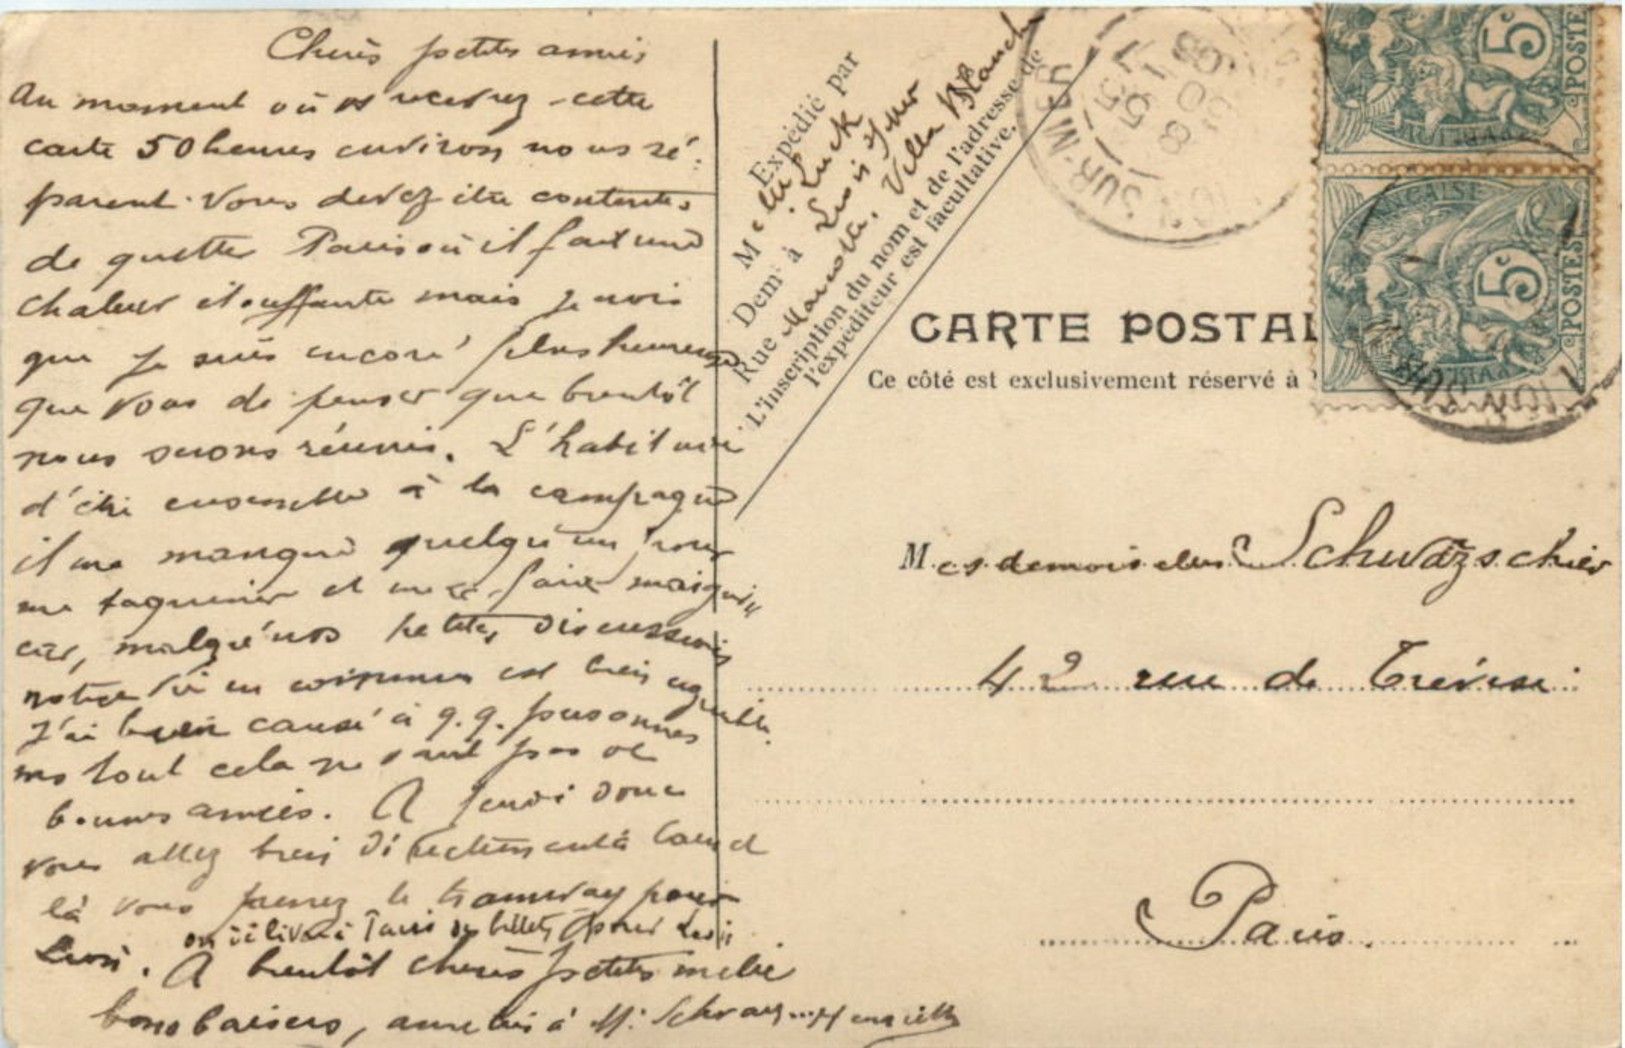 Cheres petites amies,
Au moment où vs recevrez cette
carte 50 heures environ nous sé-
parent. Vous devez être contentes
de quitter Paris où il fait une
chaleur étouffante mais je crois
que je suis encore plus heureuse
que vous de penser que bientôt
nous serons réunies. L'habituée
d'être ensemble à la campagne
il me manque quelqu'un pour
me taquiner et me faire
car, malgré nos petites discussions
notre vie en commun est bien agréable.
J'ai bien causé à q.q. personnes
ms tout cela ne vaut pas de
bonnes amies. A jeudi donc
vous allez bien directement à Caen et
là vous prenez le tramway pour
Luc. on délivre à Paris des billets pour
A bientôt cheres petites mille
bons baisers, amitiés à M. Schwarz
Expédié par
M elle Luck
Demt à sur Mer
Rue Villa Blanche
L'inscription du nom et de l'adresse de
l'expéditeur est facultative.
SUR-MER
CARTE POSTAL
Ce côté est exclusivement réservé à
5c
POSTES
FRANÇAISE
5c
POSTES
Mesdemoiselles
42 rue de Trévise
Paris.